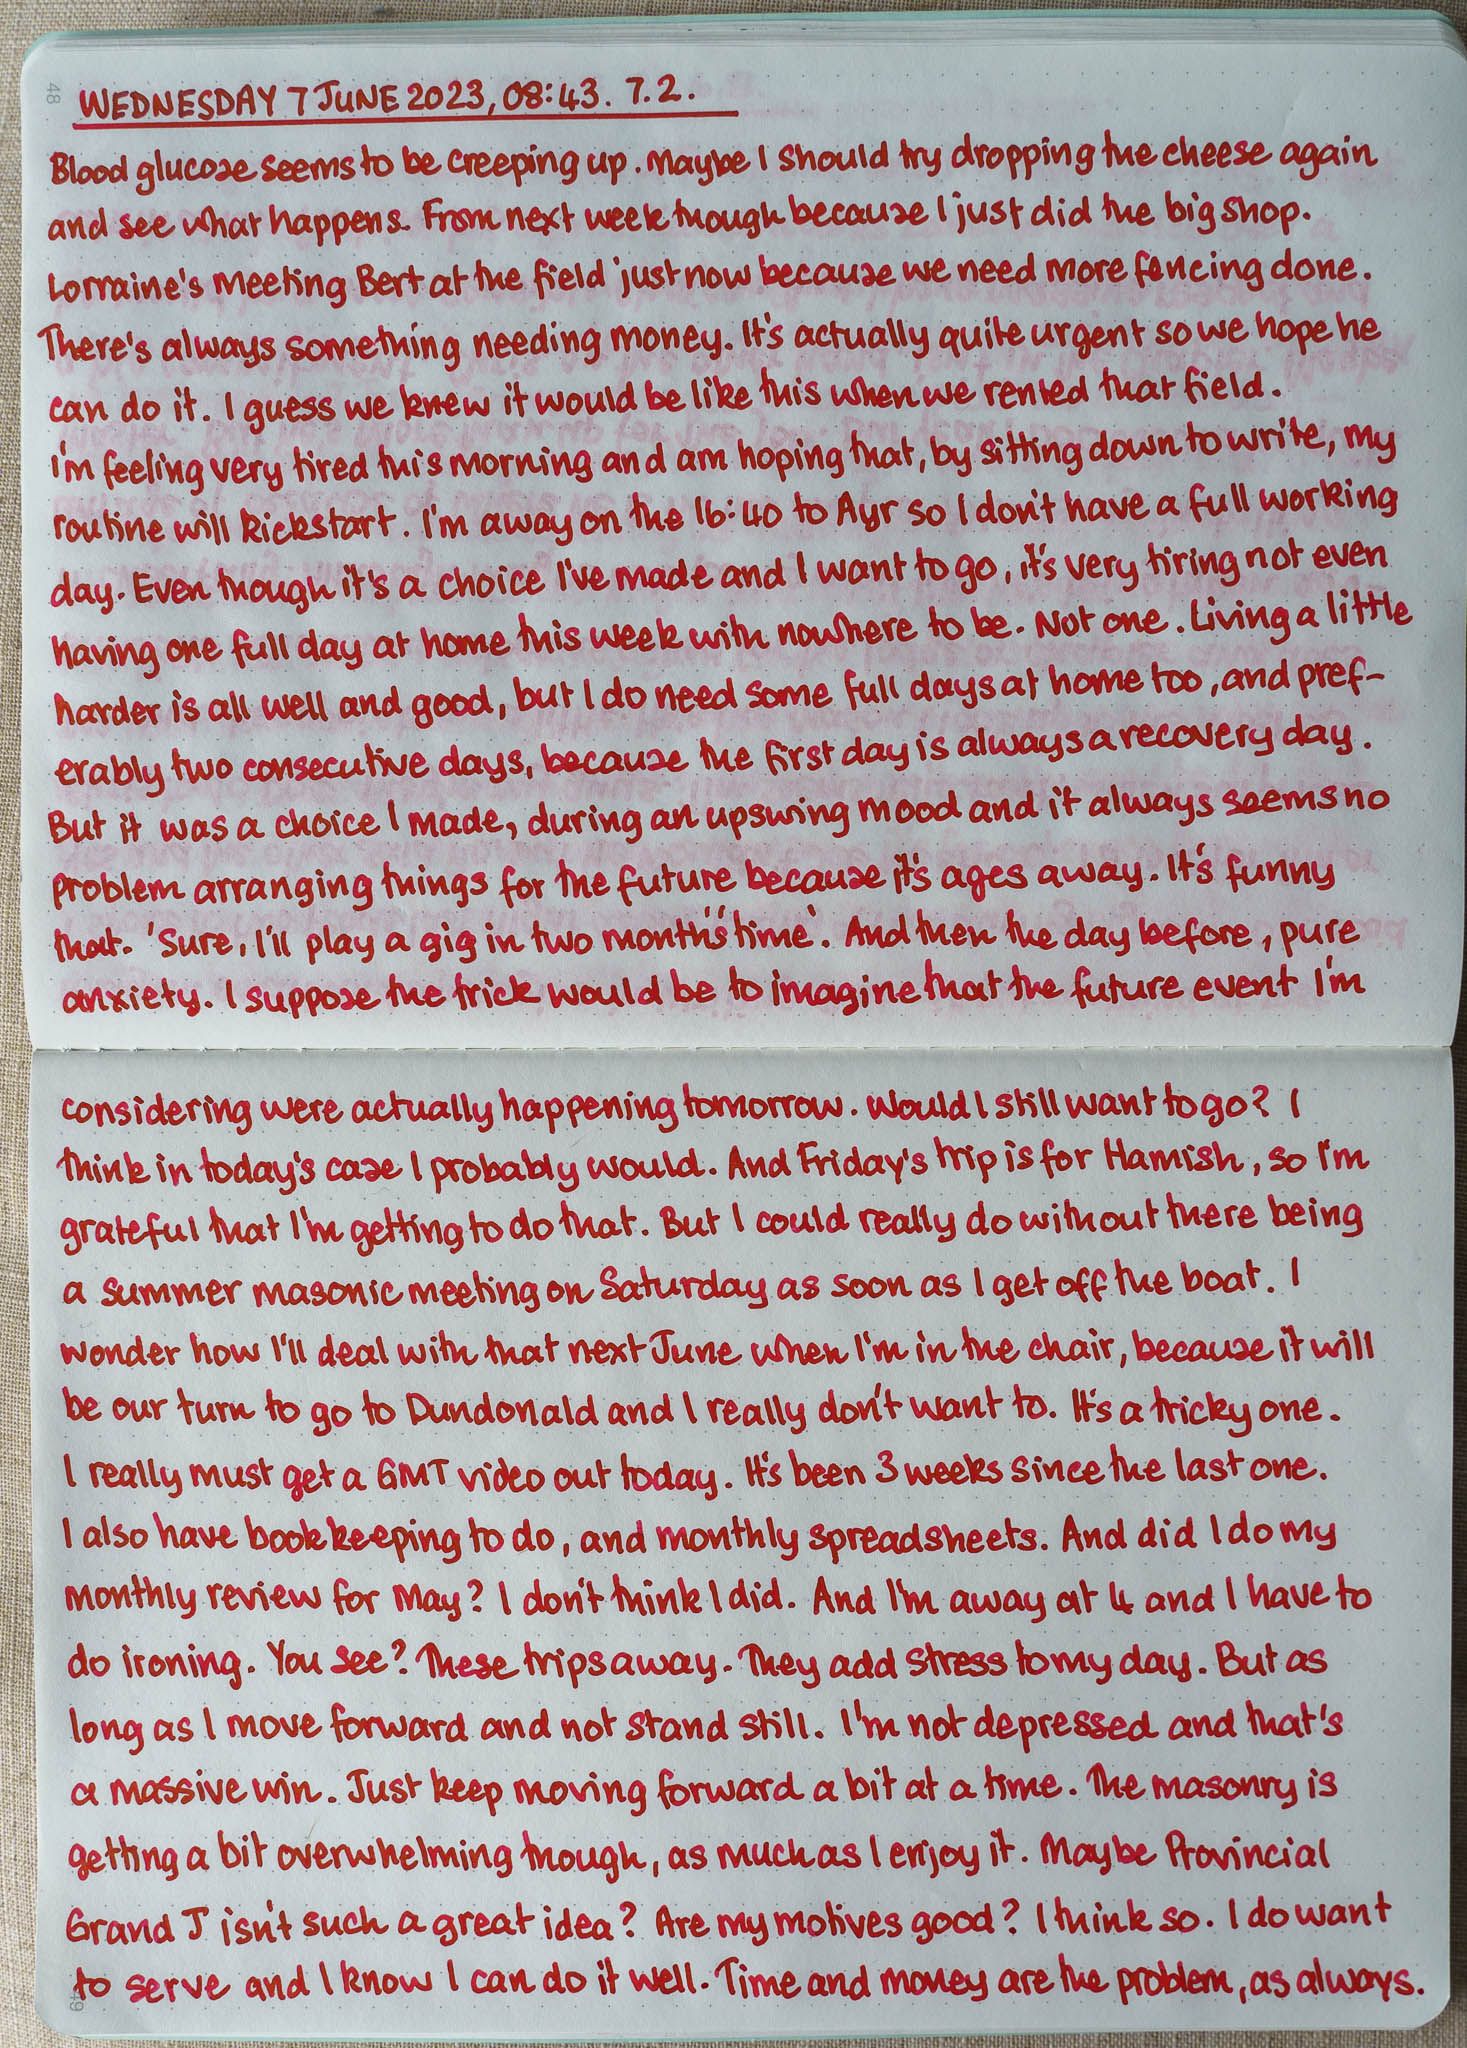 48
WEDNESDAY 7 JUNE 2023, 08:43. 7.2.
Blood glucose seems to be creeping up. Maybe I should try dropping the cheese again
and see what happens. From next week though because I just did the big shop.
Lorraine's meeting Bert at the field just now because we need more fencing done.
There's always something needing money. It's actually quite urgent so we hope he
can do it. I guess we knew it would be like this when we rented that field.
I'm feeling very tired this morning and am hoping that, by sitting down to write, my
routine will kickstart. I'm away on the 16:40 to Ayr so I don't have a full working
day. Even though it's a choice I've made and I want to go, it's very tiring not even
having one full day at home this week with nowhere to be. Not one. Living a little
harder is all well and good, but I do need some full days at home too, and pref-
erably two consecutive days, because the first day is always a recovery day.
But it was a choice I made, during an upswing mood and it always seems no
problem arranging things for the future because it's ages away. It's funny
that. 'Sure, I'll play a gig in two month's time'. And then the day before, pure
anxiety. I suppose the trick would be to imagine that the future event I'm
considering were actually happening tomorrow. Would I still want to go? I
think in today's case I probably would. And Friday's trip is for Hamish, so I'm
grateful that I'm getting to do that. But I could really do without there being
a summer masonic meeting on Saturday as soon as I get off the boat. I
wonder how I'll deal with that next June when I'm in the chair, because it will
be our turn to go to Dundonald and I really don't want to. It's a tricky one.
I really must get a GMT video out today. It's been 3 weeks since the last one.
I also have bookkeeping to do, and monthly spreadsheets. And did I do my
monthly review for May? I don't think I did. And I'm away at 4 and I have to
do ironing. You see? These trips away. They add stress to my day. But as
long as I move forward and not stand still. I'm not depressed and that's
a massive win. Just keep moving forward a bit at a time. The masonry is
getting a bit overwhelming though, as much as I enjoy it. Maybe Provincial
Grand J isn't such a great idea? Are my motives good? I think so. I do want
to serve and I know I can do it well. Time and money are the problem, as always.
49